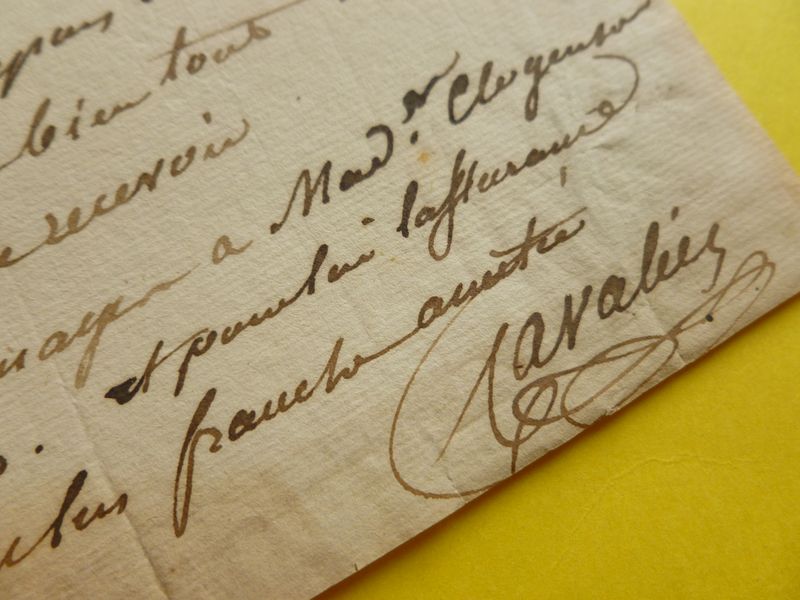 bien tous
recevoir
a Mad.r Clogenson
et pour lui lassurance
plus franche amitié
Cavalier